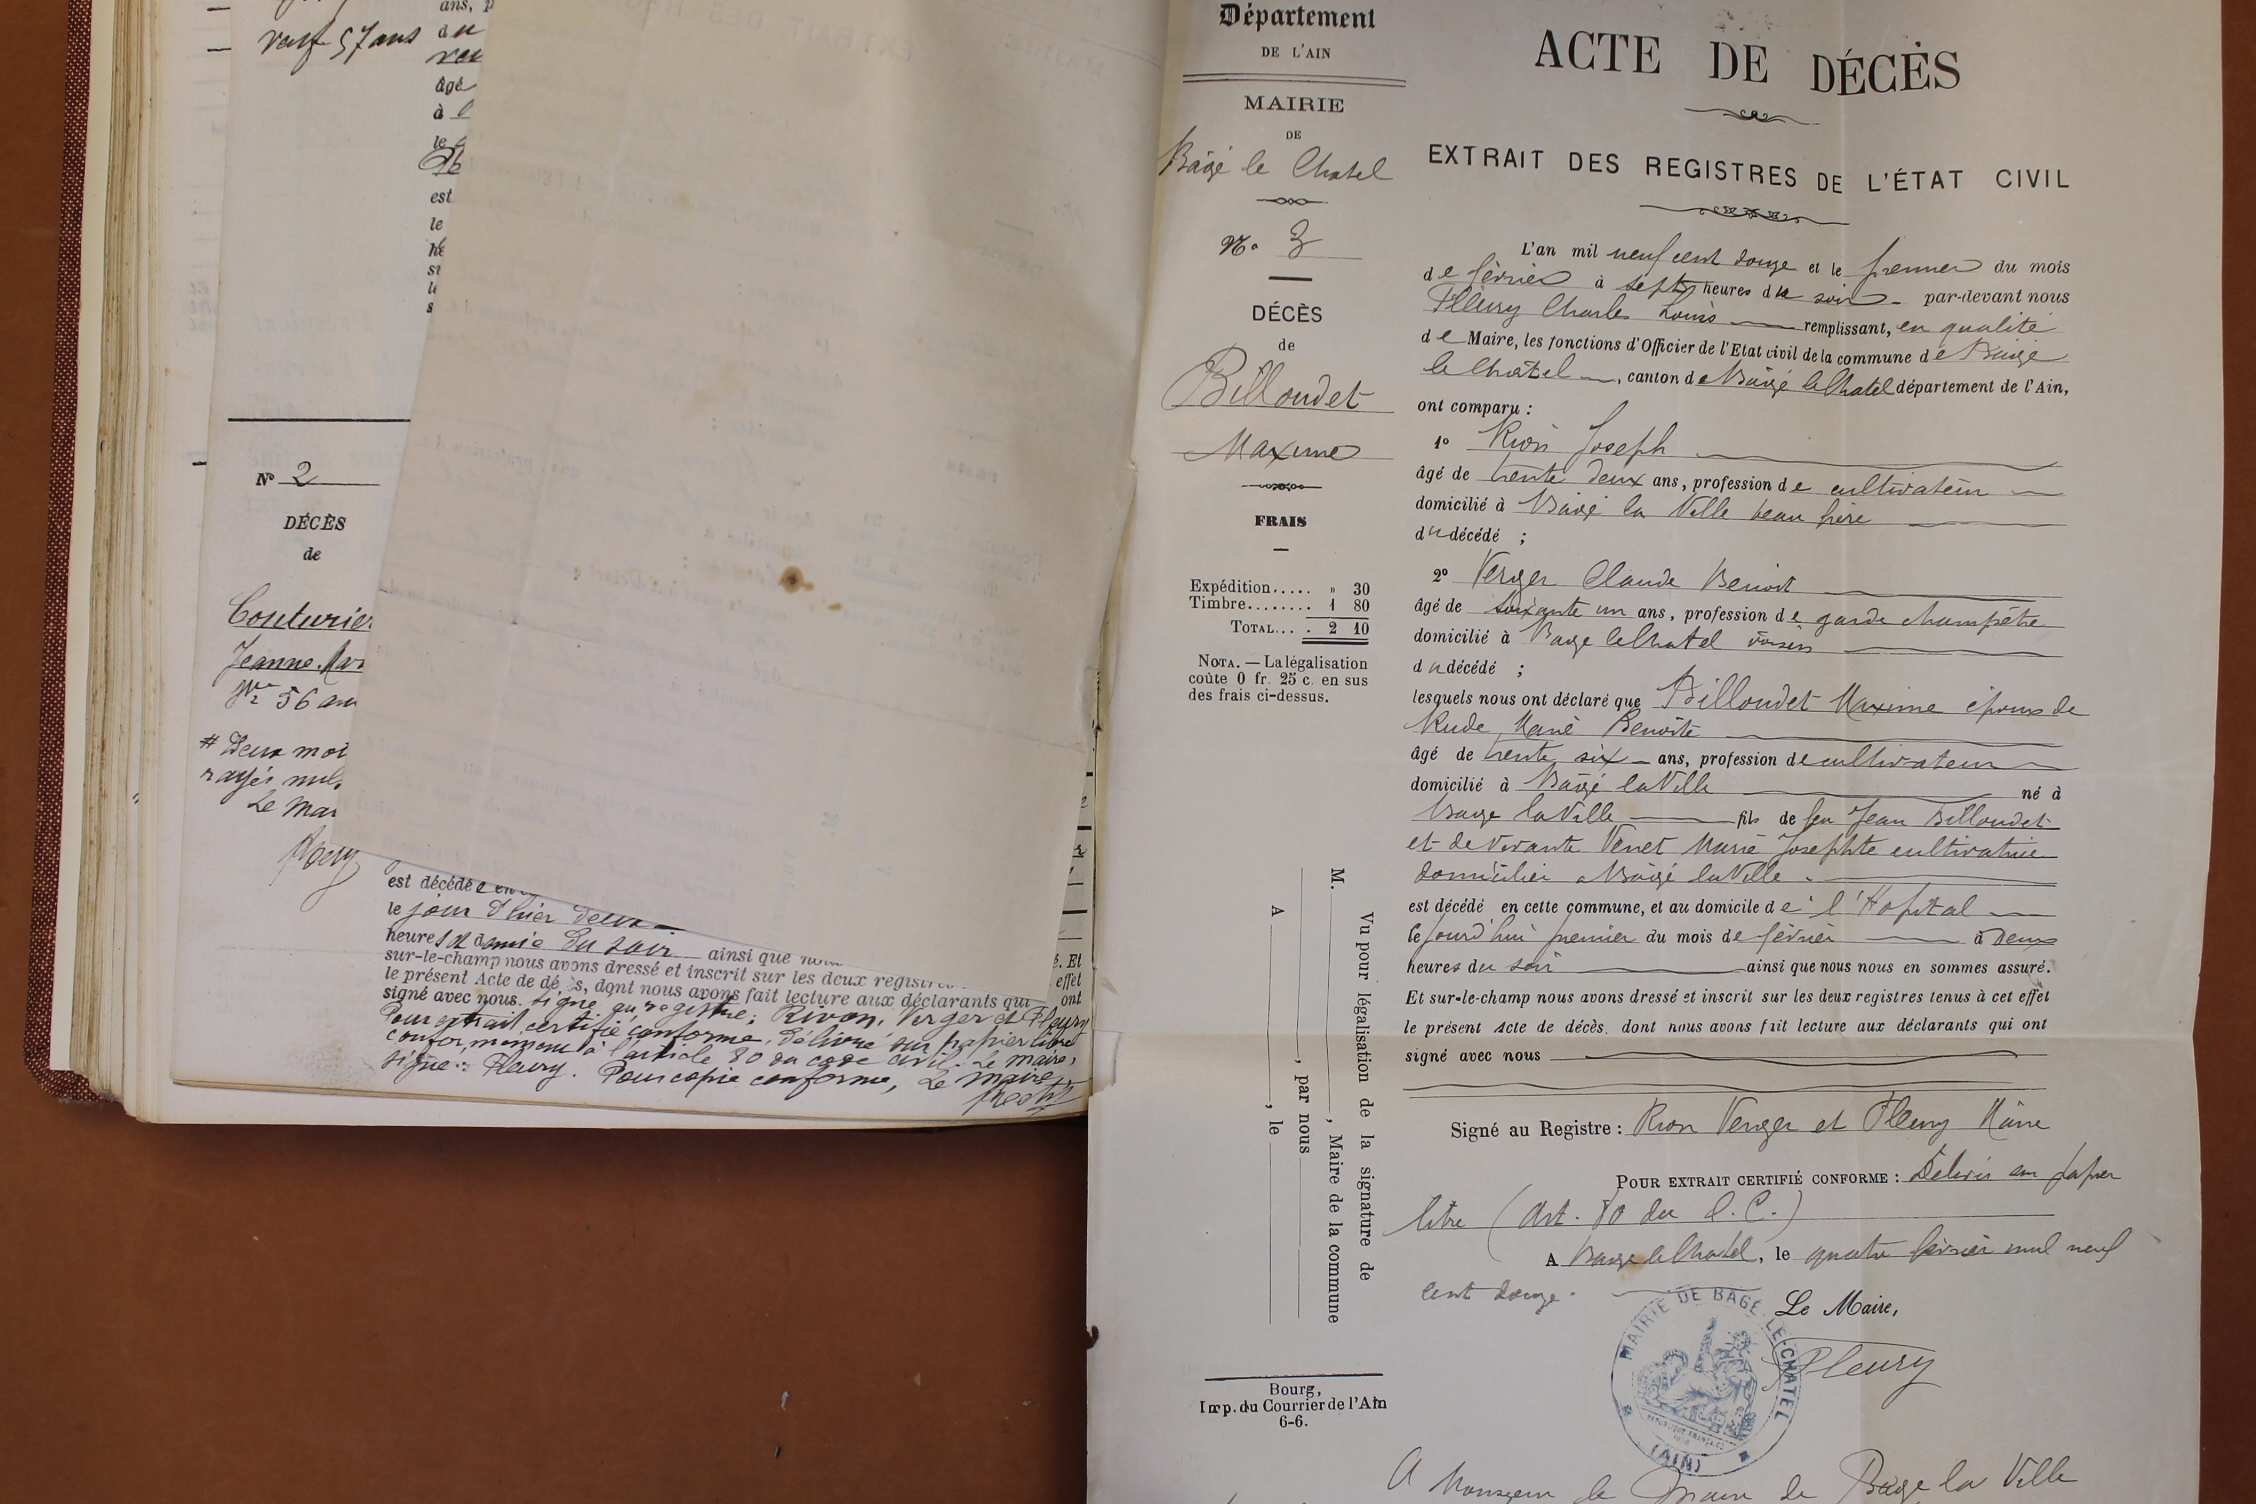 ans, p
veuf 57 ans du
veu
âgé
à
le
est
le
he
su
le
s
N° 2
DÉCÈS
de
Couturier
Jeanne Mar
56 an
# Deux mot
rayés nul.
Le Mai
Fleury
est décédée en
le jour d'hier deux
heures et demie du soir ainsi que nou
sur-le-champ nous avons dressé et inscrit sur les deux registres
le présent Acte de décès, dont nous avons fait lecture aux déclarants qui
signé avec nous. Signé au registre: Rivon, Verger et Fleury
Pour extrait certifié conforme, délivré sur papier libre
conformément à l'article 80 du code civil. Le maire,
signé: Fleury. Pour copie conforme, Le Maire
é. Et
effet
ont
Département
DE L'AIN
MAIRIE
DE
Bâgé le Chatel
N° 3
DÉCÈS
de
Billoudet
Maxime
FRAIS
Expédition..... » 30
Timbre........ 1 80
TOTAL.... 2 10
NOTA. — La légalisation
coûte 0 fr. 25 c. en sus
des frais ci-dessus.
Vu pour légalisation de la signature de
M. , Maire de la commune
, par nous
A , le
Bourg,
Imp. du Courrier de l'Ain
6-6.
ACTE DE DÉCÈS
EXTRAIT DES REGISTRES DE L'ÉTAT CIVIL
L'an mil neuf cent douze et le premier du mois
de février à sept heures du soir par-devant nous
Fleury Charles Louis remplissant, en qualité
de Maire, les fonctions d'Officier de l'Etat civil de la commune de Bâgé
le Châtel, canton de Bâgé le Chatel département de l'Ain,
ont comparu :
1° Rion Joseph
âgé de trente deux ans, profession de cultivateur
domicilié à Bâgé la Ville beau frère
du décédé ;
2° Verger Claude Benoit
âgé de soixante un ans, profession de garde champêtre
domicilié à Bage le Chatel voisin
du décédé ;
lesquels nous ont déclaré que Billoudet Maxime époux de
Rude Marie Benoite
âgé de trente six ans, profession de cultivateur
domicilié à Bâgé la Ville né à
Bage la Ville fils de feu Jean Billoudet
et de vivante Venet Marie Josephte cultivatrice
domiciliée à Bâgé la Ville.
est décédé en cette commune, et au domicile de l'Hopital
le jourd'hui premier du mois de février à deux
heures du soir ainsi que nous nous en sommes assuré.
Et sur-le-champ nous avons dressé et inscrit sur les deux registres tenus à cet effet
le présent acte de décès, dont nous avons fait lecture aux déclarants qui ont
signé avec nous
Signé au Registre : Rion Verger et Fleury Maire
POUR EXTRAIT CERTIFIÉ CONFORME : Délivré sur papier
libre (Art. 80 du C. C.)
A Bage le Chatel, le quatre février mil neuf
cent douze.
Le Maire,
Fleury
MAIRIE DE BAGÉ-LE-CHATEL
(AIN)
A Monsieur le Maire de Bâge la Ville